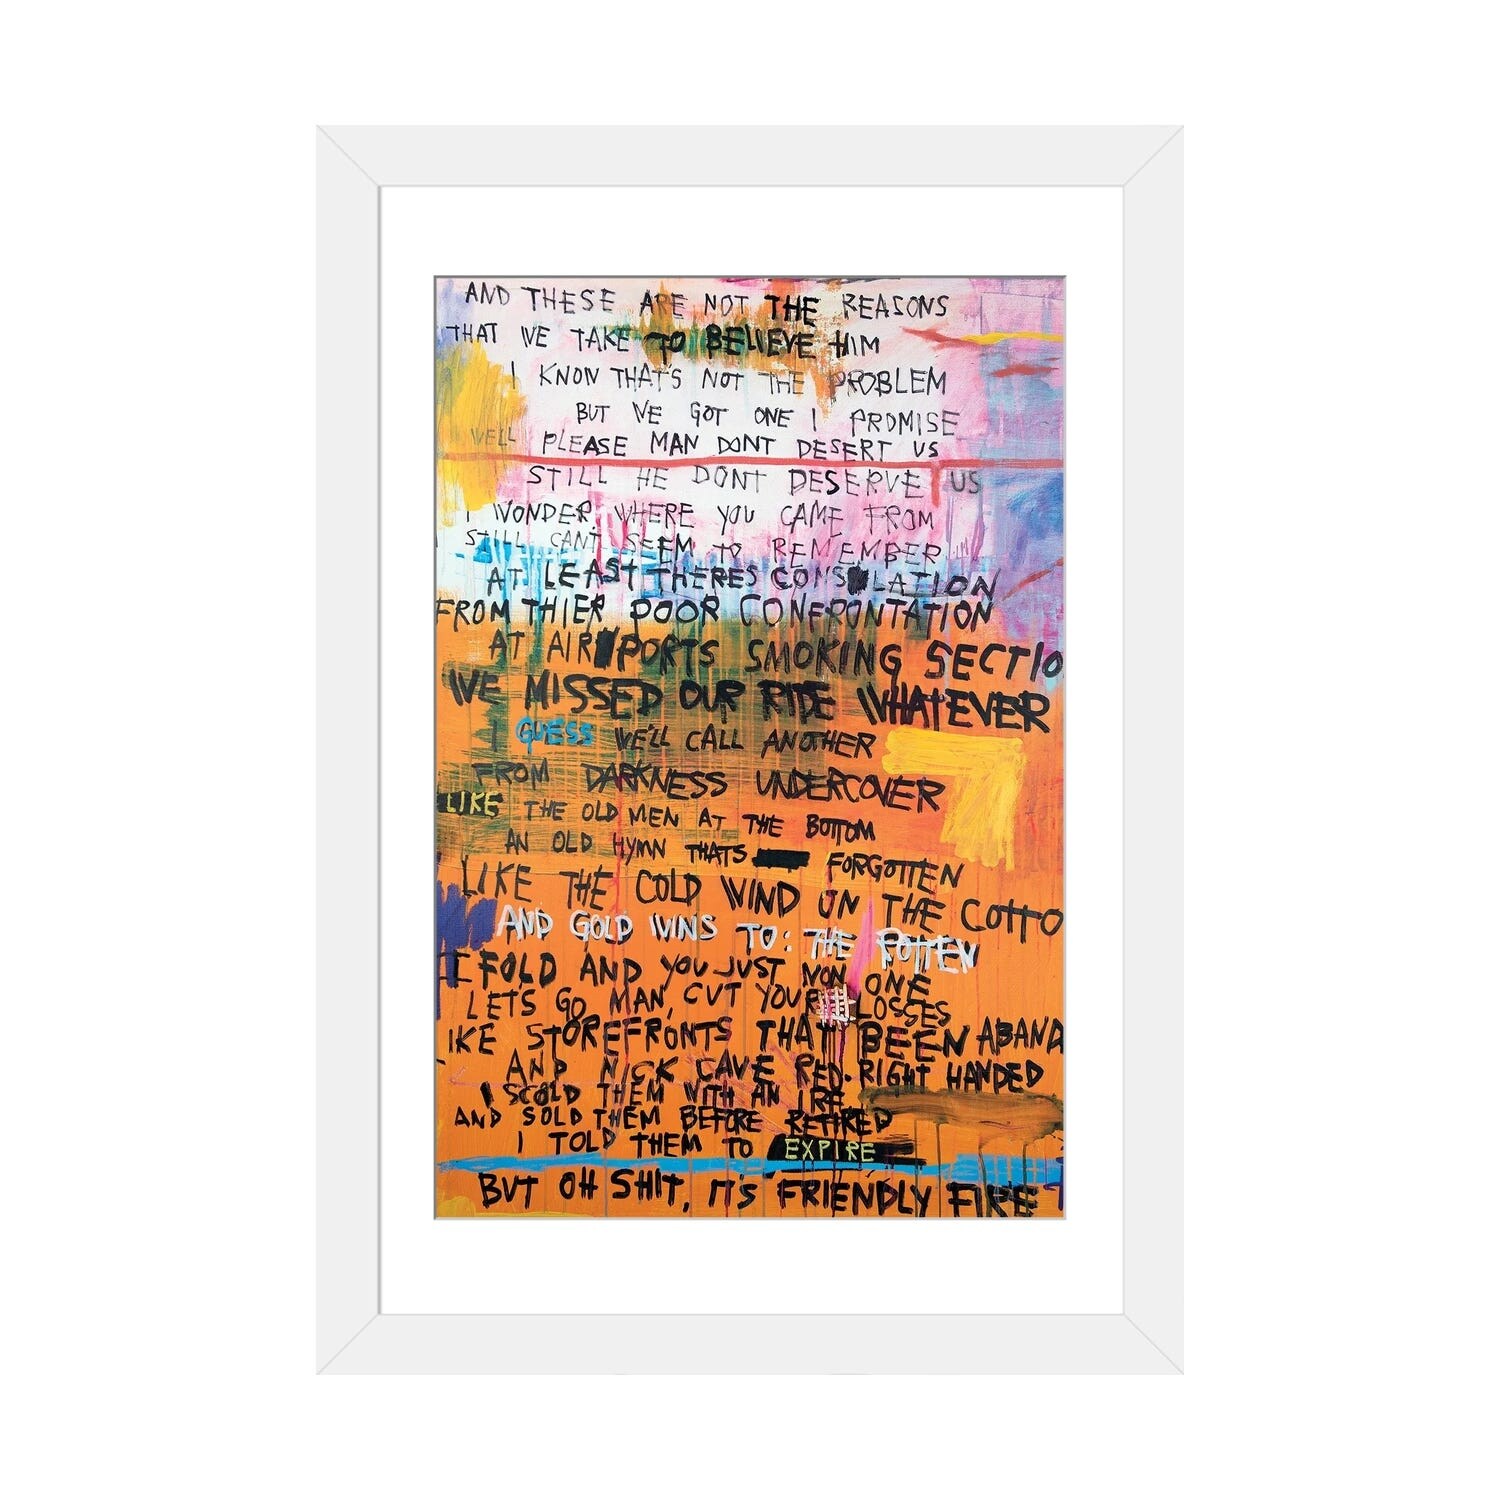 AND THESE ARE NOT THE REASONS
THAT WE TAKE TO BELIEVE HIM
I KNOW THAT'S NOT THE PROBLEM
BUT WE GOT ONE I PROMISE
WELL PLEASE MAN DONT DESERT US
STILL HE DONT DESERVE US
I WONDER WHERE YOU CAME FROM
STILL CAN'T SEEM TO REMEMBER
AT LEAST THERES CONSOLATION
FROM THIER POOR CONFRONTATION
AT AIRPORTS SMOKING SECTIO
WE MISSED OUR RIDE WHATEVER
I GUESS WE'LL CALL ANOTHER
FROM DARKNESS UNDERCOVER
LIKE THE OLD MEN AT THE BOTTOM
AN OLD HYMN THATS FORGOTTEN
LIKE THE COLD WIND ON THE COTTO
AND GOLD WINS TO: THE ROTTEN
I FOLD AND YOU JUST WON ONE
LET'S GO MAN, CUT YOUR LOSSES
IKE STOREFRONTS THAT BEEN ABAND
AND NICK CAVE RED. RIGHT HANDED
I SCOLD THEM WITH AN IRE
AND SOLD THEM BEFORE RETIRED
I TOLD THEM TO EXPIRE
BUT OH SHIT, IT'S FRIENDLY FIRE